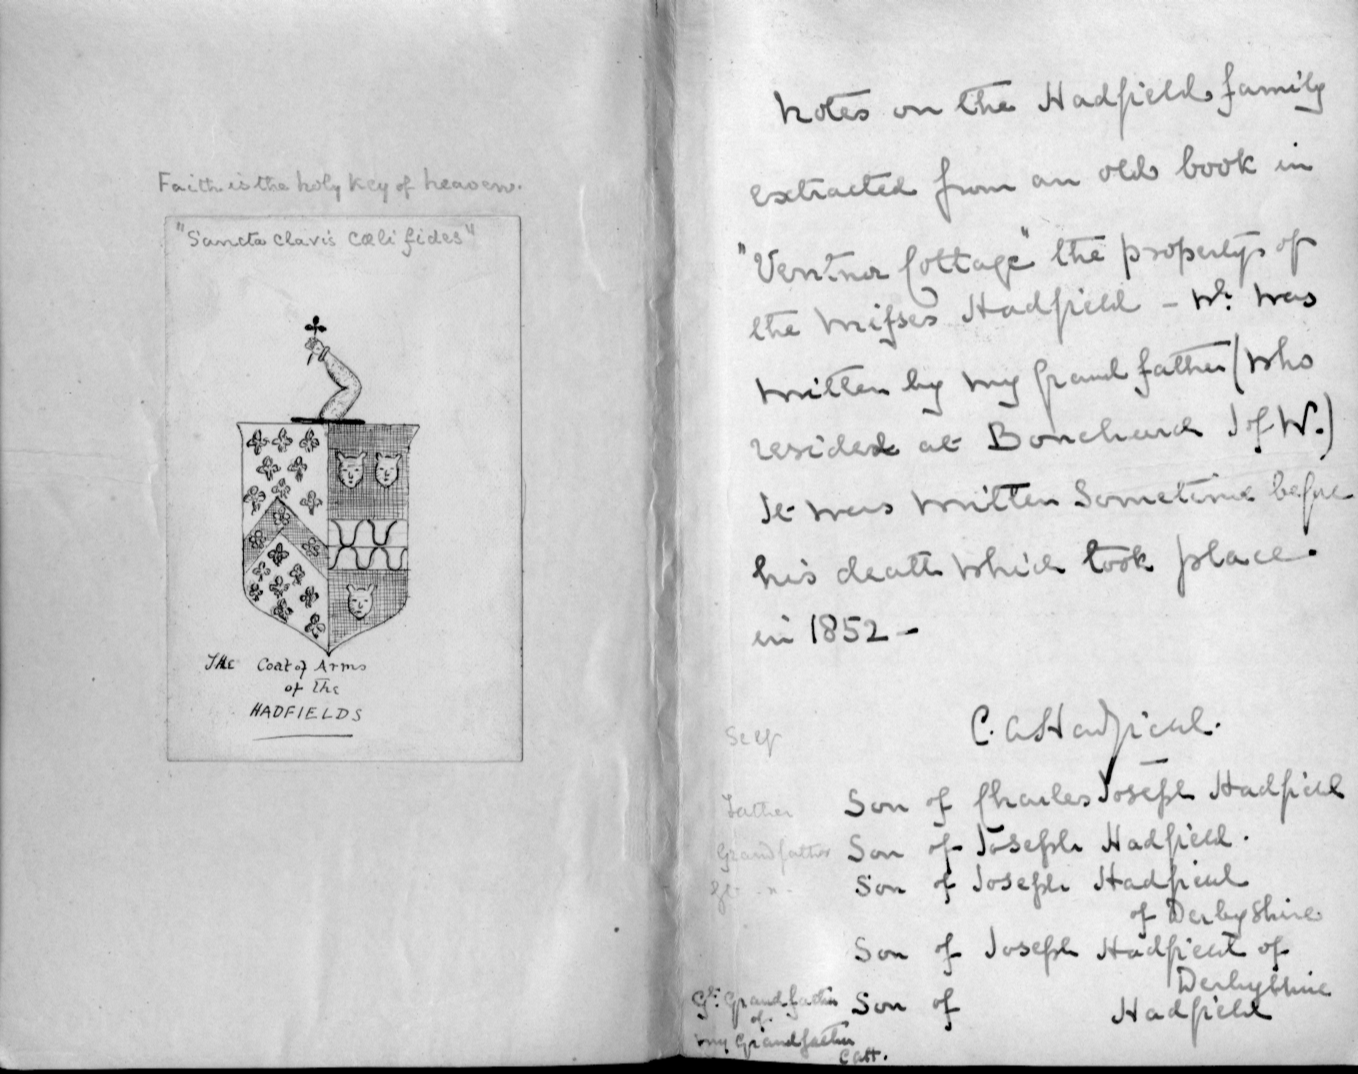 Faith is the holy key of heaven.
"Sancta clavis cœli fides"
The Coat of Arms
of the
HADFIELDS
Notes on the Hadfield family
extracted from an old book in
"Ventnor Cottage" the property of
the Misses Hadfield - wh: was
written by my Grandfather (who
resided at Bonchurch I of W.)
It was written sometime before
his death which took place
in 1852 -
C. A Hadfield.
Self
Father Son of Charles Joseph Hadfield
Grandfather Son of Joseph Hadfield.
Son of Joseph Hadfield
of Derbyshire
Son of Joseph Hadfield of
Derbyshire
Gt. Grandfather Son of Hadfield
of
my Grandfather
CAH.